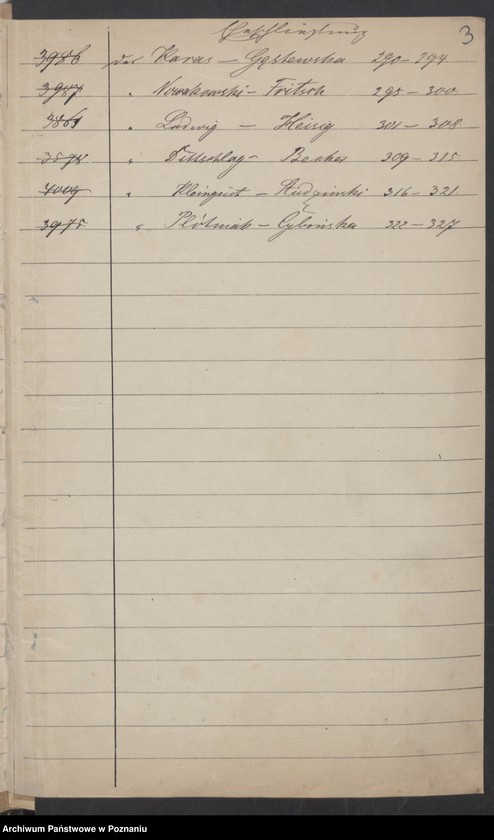 Eheschließung
3
3986 der Karas – Gęstewska 290 – 294
3987 " Nowakowski – Fritsch 295 – 300
3861 " Ludwig – Heisig 301 – 308
3578 " Dittschlag – Becker 309 – 315
4009 " Kleingeist – 316 – 321
3975 " Płótniak – Cybińska 322 – 327
Archiwum Państwowe w Poznaniu